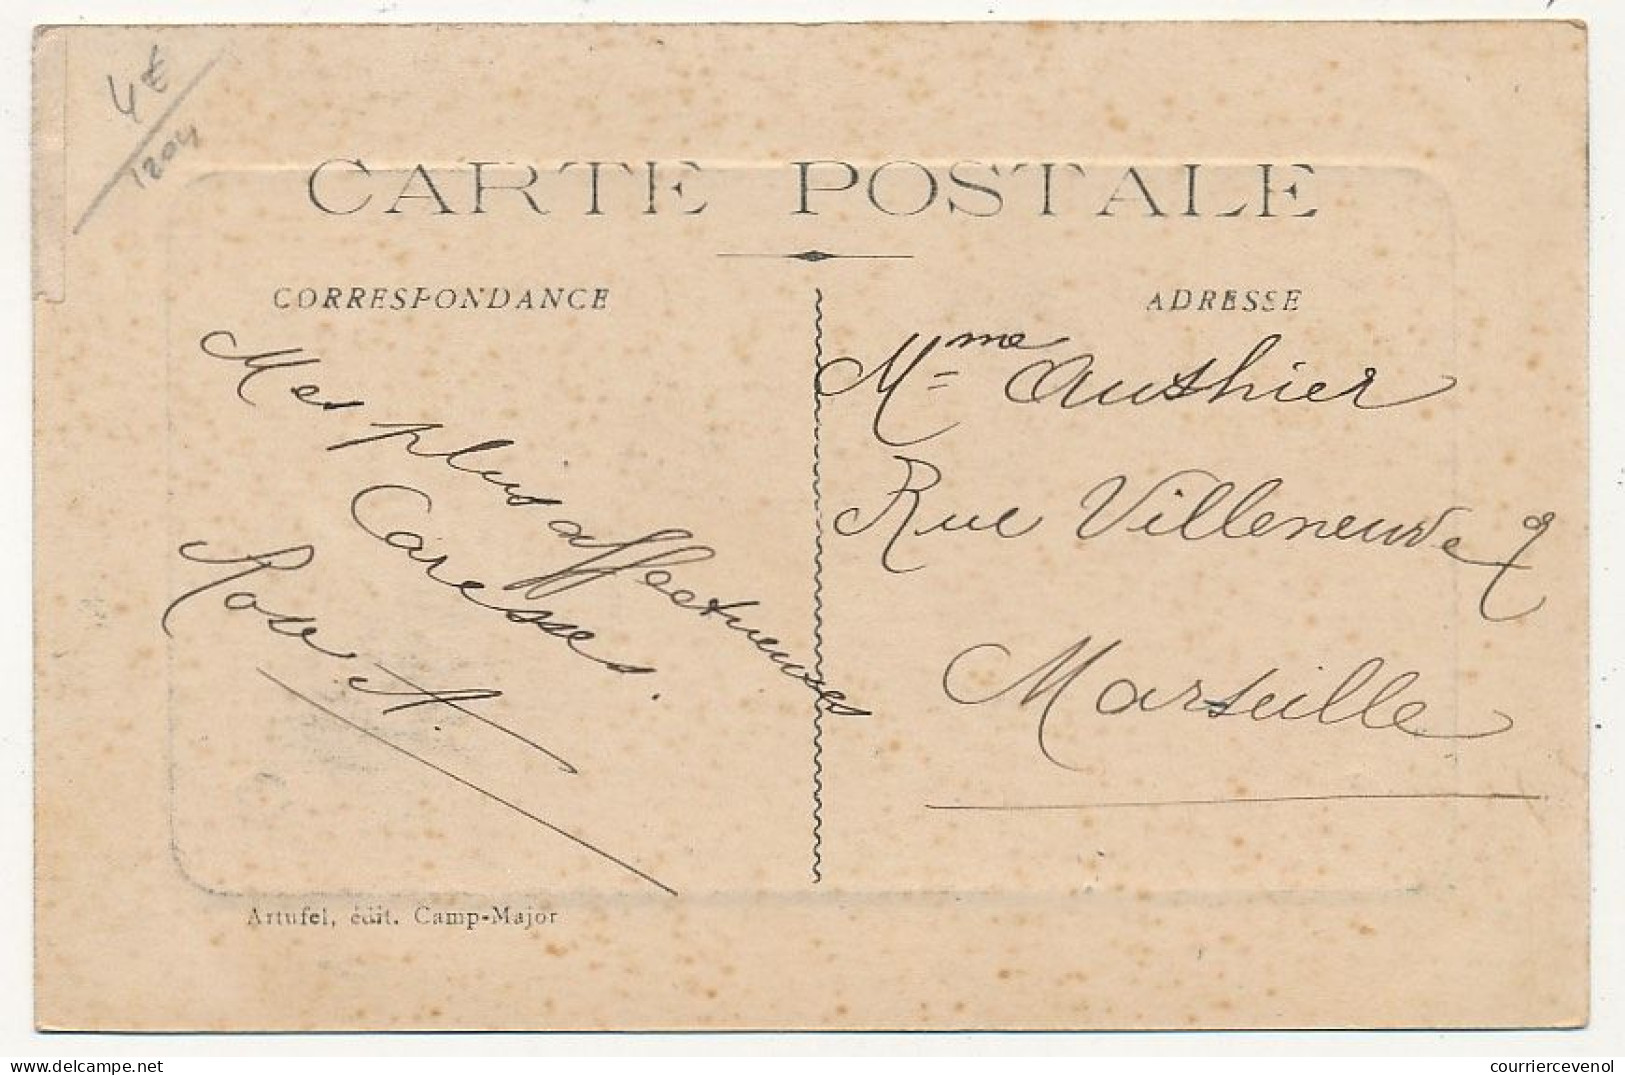 4€
1204
CARTE POSTALE
CORRESPONDANCE
Mes plus affectueuses
Caresses.
Rose. A.
ADRESSE
Mme Authier
Rue Villeneuve 9
Marseille
Artufel, édit. Camp-Major
courriercevenol